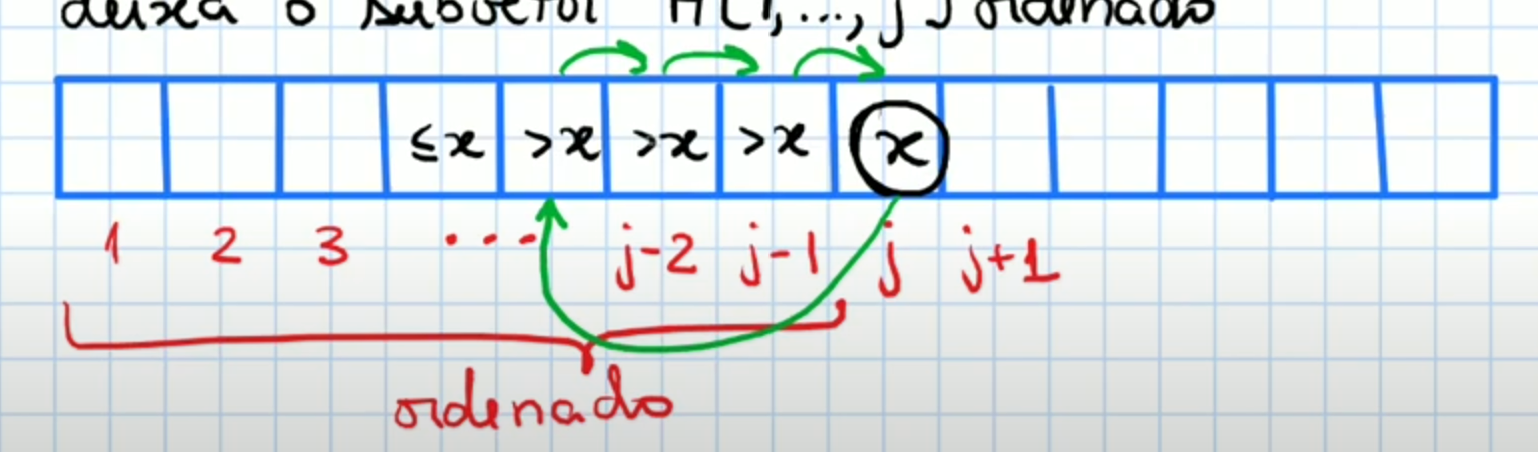 deixa o subvetor A[1,...,j] ordenado
≤x >x >x >x x
1 2 3 ... j-2 j-1 j j+1
ordenado